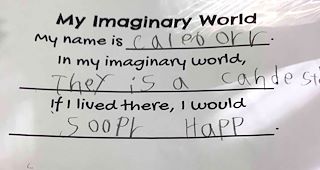 My Imaginary World
My name is caleb orr.
In my imaginary world,
They is a cande st
If I lived there, I would
Soopr Happ.